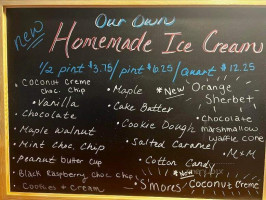 new
Our Own
Homemade Ice Cream
1/2 pint $3.75/pint $6.25/quart $12.25
• Coconut Creme choc. chip
• Vanilla
• Chocolate
• Maple Walnut
• Mint Choc. Chip
• Peanut Butter Cup
• Black Raspberry choc chip
• Cookies + Cream
• Maple
• Cake Batter
• Cookie Dough
• Salted Caramel
• Cotton Candy
• S'mores
*New Orange
Sherbet
• Chocolate
marshmallow
waffle cone
• M+M
*New
Coconut Creme